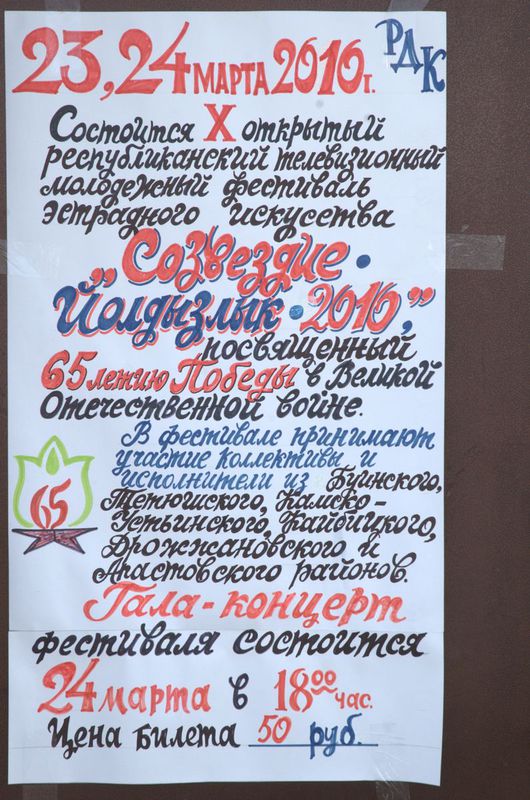 23,24 МАРТА 2010г. РДК
Состоится X открытый
республиканский телевизионный
молодежный фестиваль
эстрадного искусства
„Созвездие •
Йолдызлык • 2010”,
посвященный
65летию Победы в Великой
Отечественной войне.
В фестивале принимают
участие коллективы и
исполнители из Буинского,
Тетюшского, Камско-
Устьинского, Кайбицкого,
65
Дрожжановского и
Апастовского районов.
Гала-концерт
фестиваля состоится
24 марта в 18⁰⁰ час.
Цена билета 50 руб.